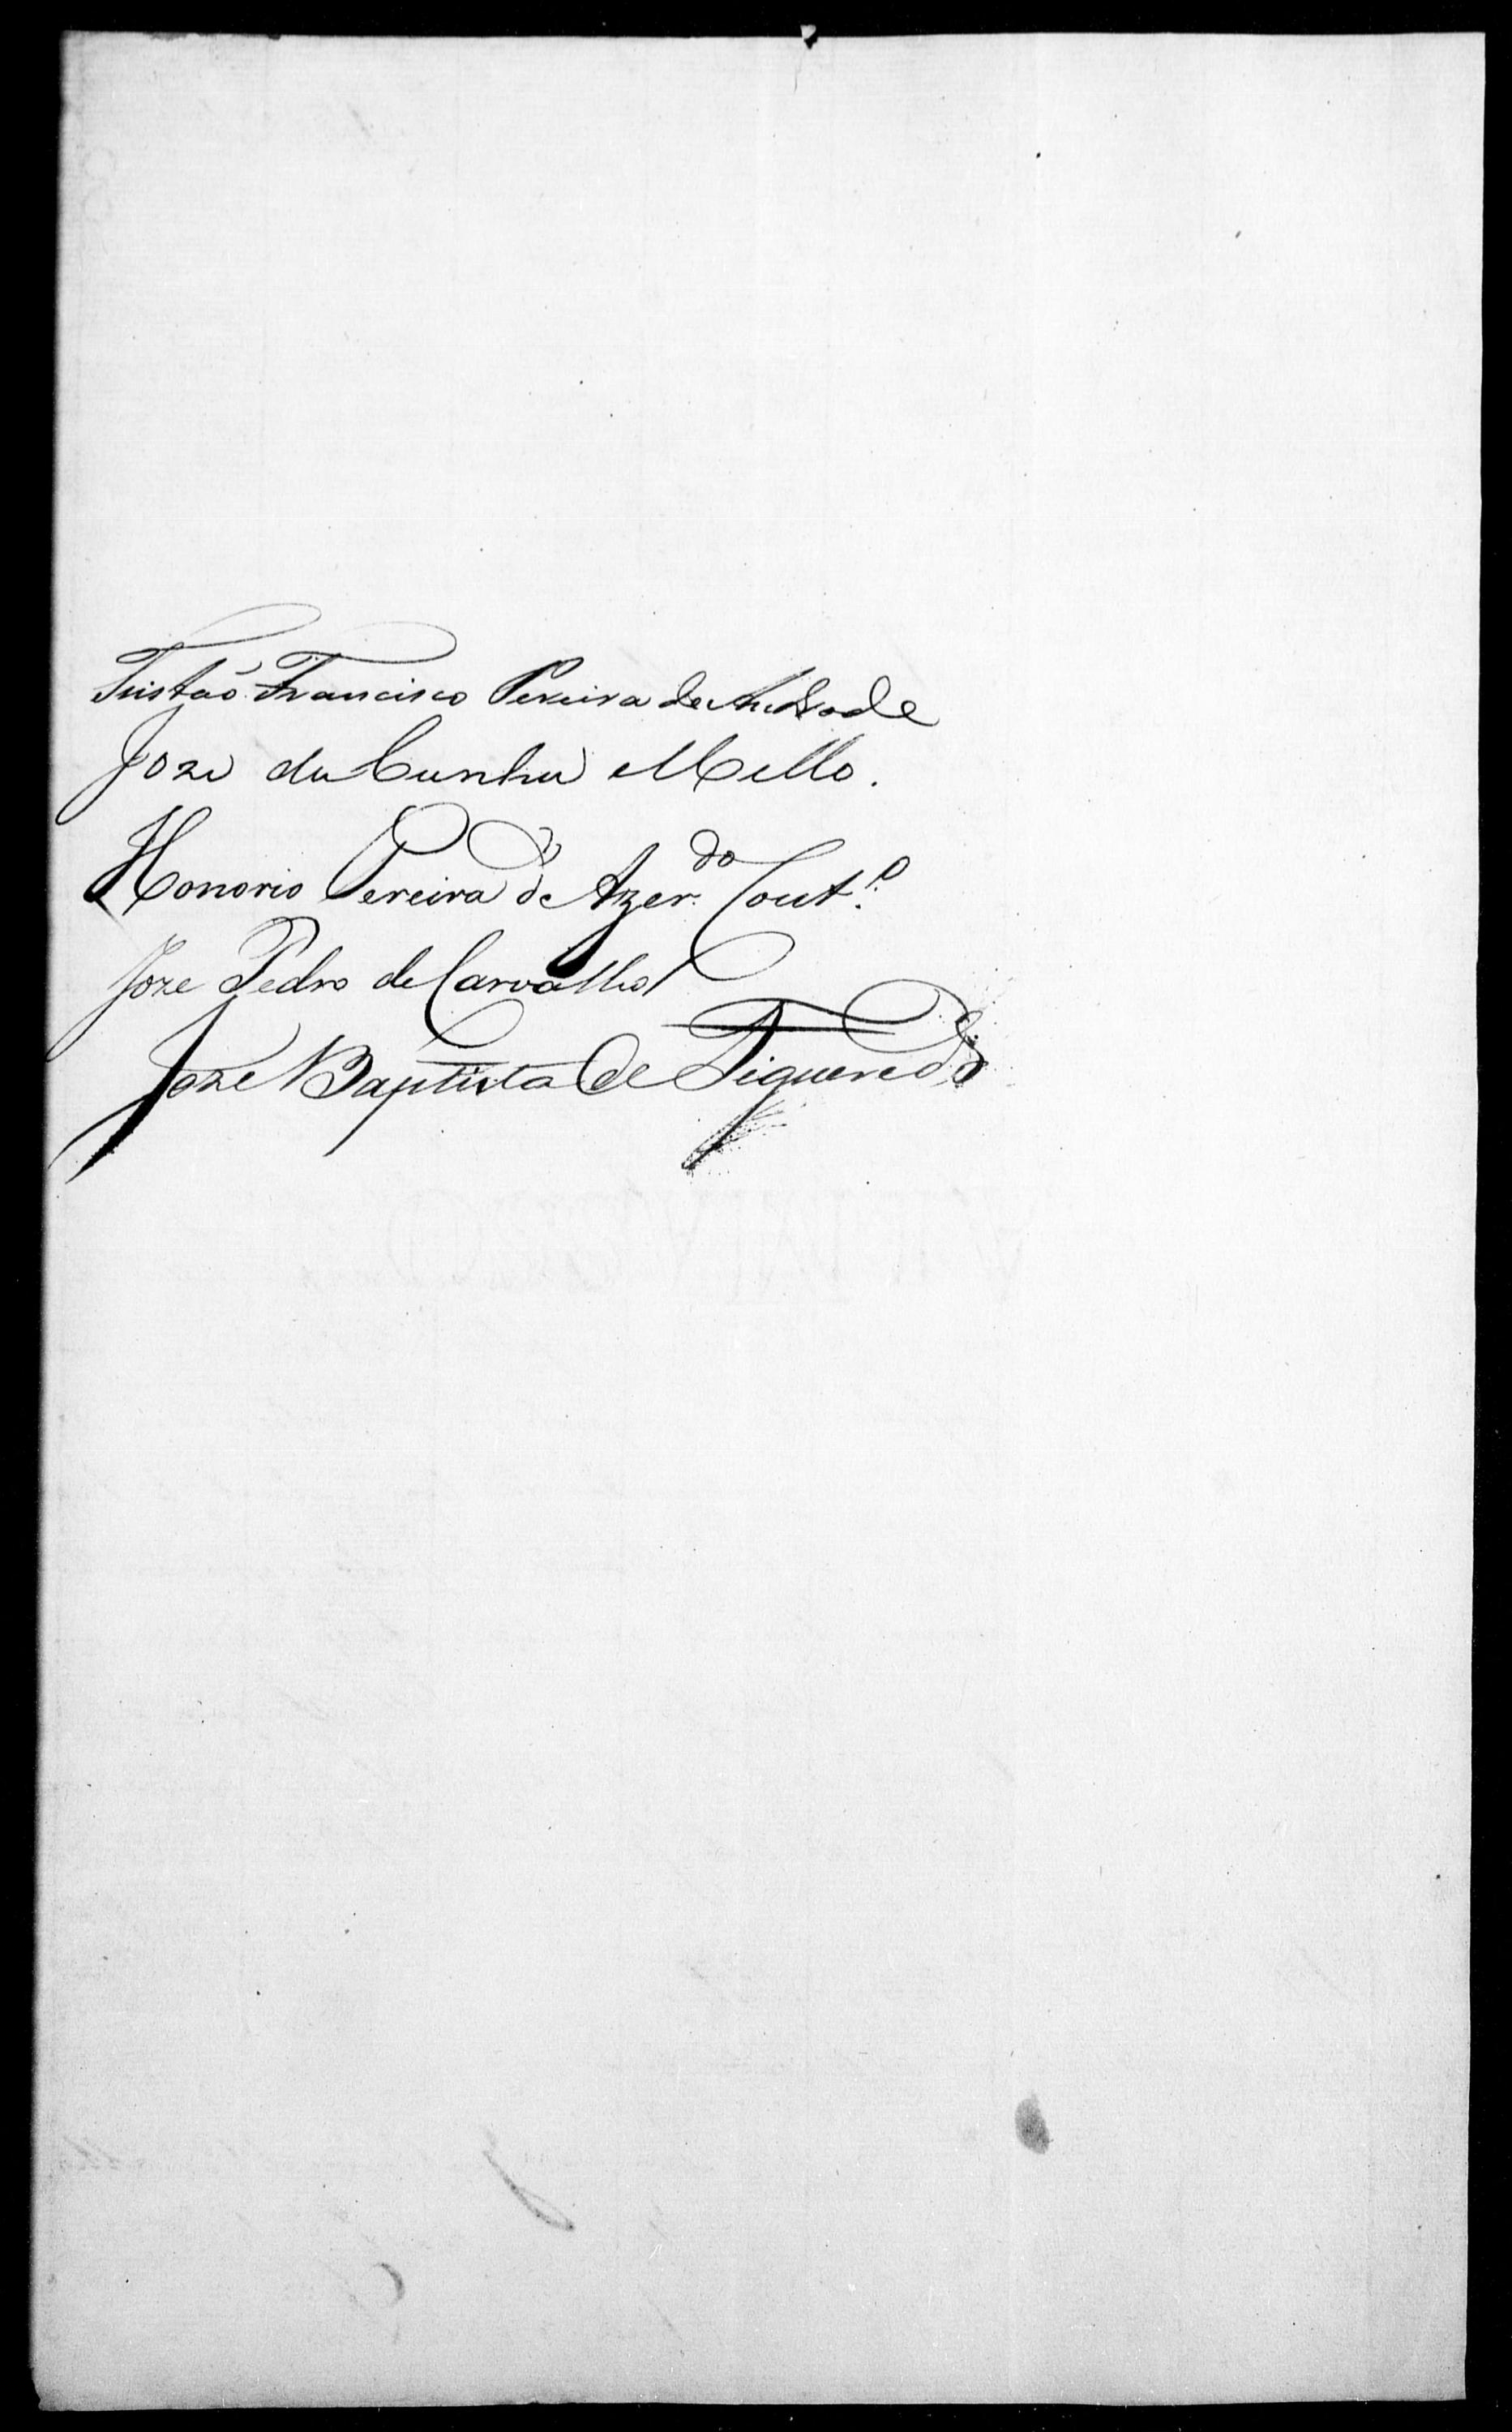 Tristaõ Francisco Pereira de Andrade
Joze da Cunha Mello.
Honorio Pereira de Azer.do Cout.o
Joze Pedro de Carvalho
Joze Baptista de Figueredo